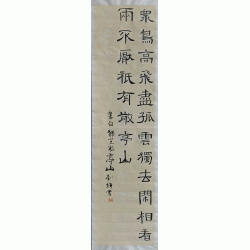 眾鳥高飛盡孤雲獨去閑相看
兩不厭祇有敬亭山
李白獨坐敬亭山